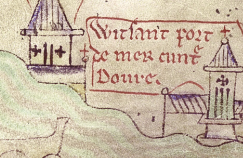 Witsant port
de mer cuntre
Dovre.